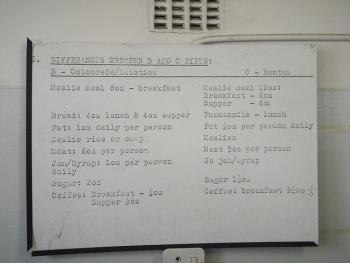 5. DIFFERANCES BETWEEN B AND C DIETS:
B - Coloureds/Asiatics C - Bantus
Mealie meal 6oz - breakfast Mealie meal 12oz:
Breakfast - 6oz
Supper - 6oz
Bread: 4oz lunch & 4oz supper Puzamandla - lunch
Fat: 1oz daily per person Fat ½oz per person daily
Mealie rice or samp Mealies
Meat: 6oz per person Meat 5oz per person
Jam/Syrup: 1oz per person No jam/syrup
daily
Sugar: 2oz Sugar 1½oz
Coffee: Breakfast - Coffee: breakfast
Supper